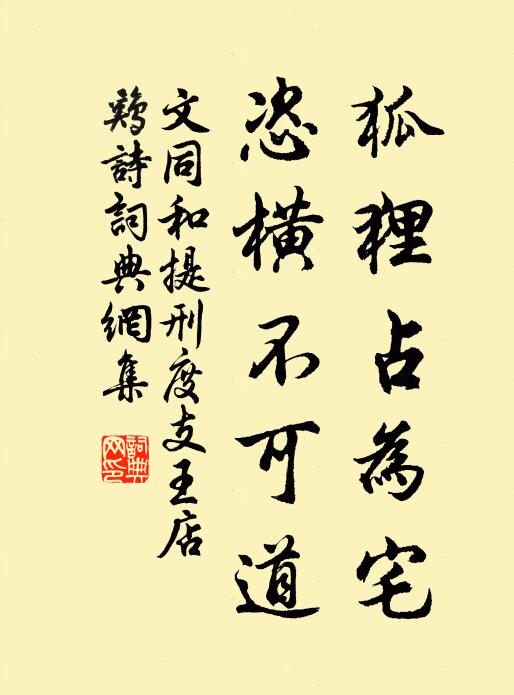 狐狸占為宅
恣橫不可道
文同和提刑度支王店
鷄詩詞典網集
詞典
网印